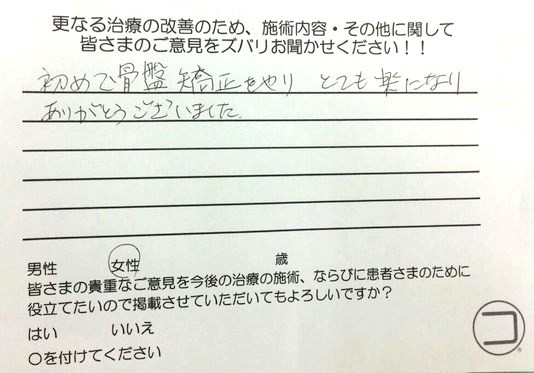 更なる治療の改善のため、施術内容・その他に関して
皆さまのご意見をズバリお聞かせください！！
初めて骨盤矯正をやり とても楽になり
ありがとうございました。
男性 女性 歳
皆さまの貴重なご意見を今後の治療の施術、ならびに患者さまのために
役立てたいので掲載させていただいてもよろしいですか？
はい いいえ
〇を付けてください
コ